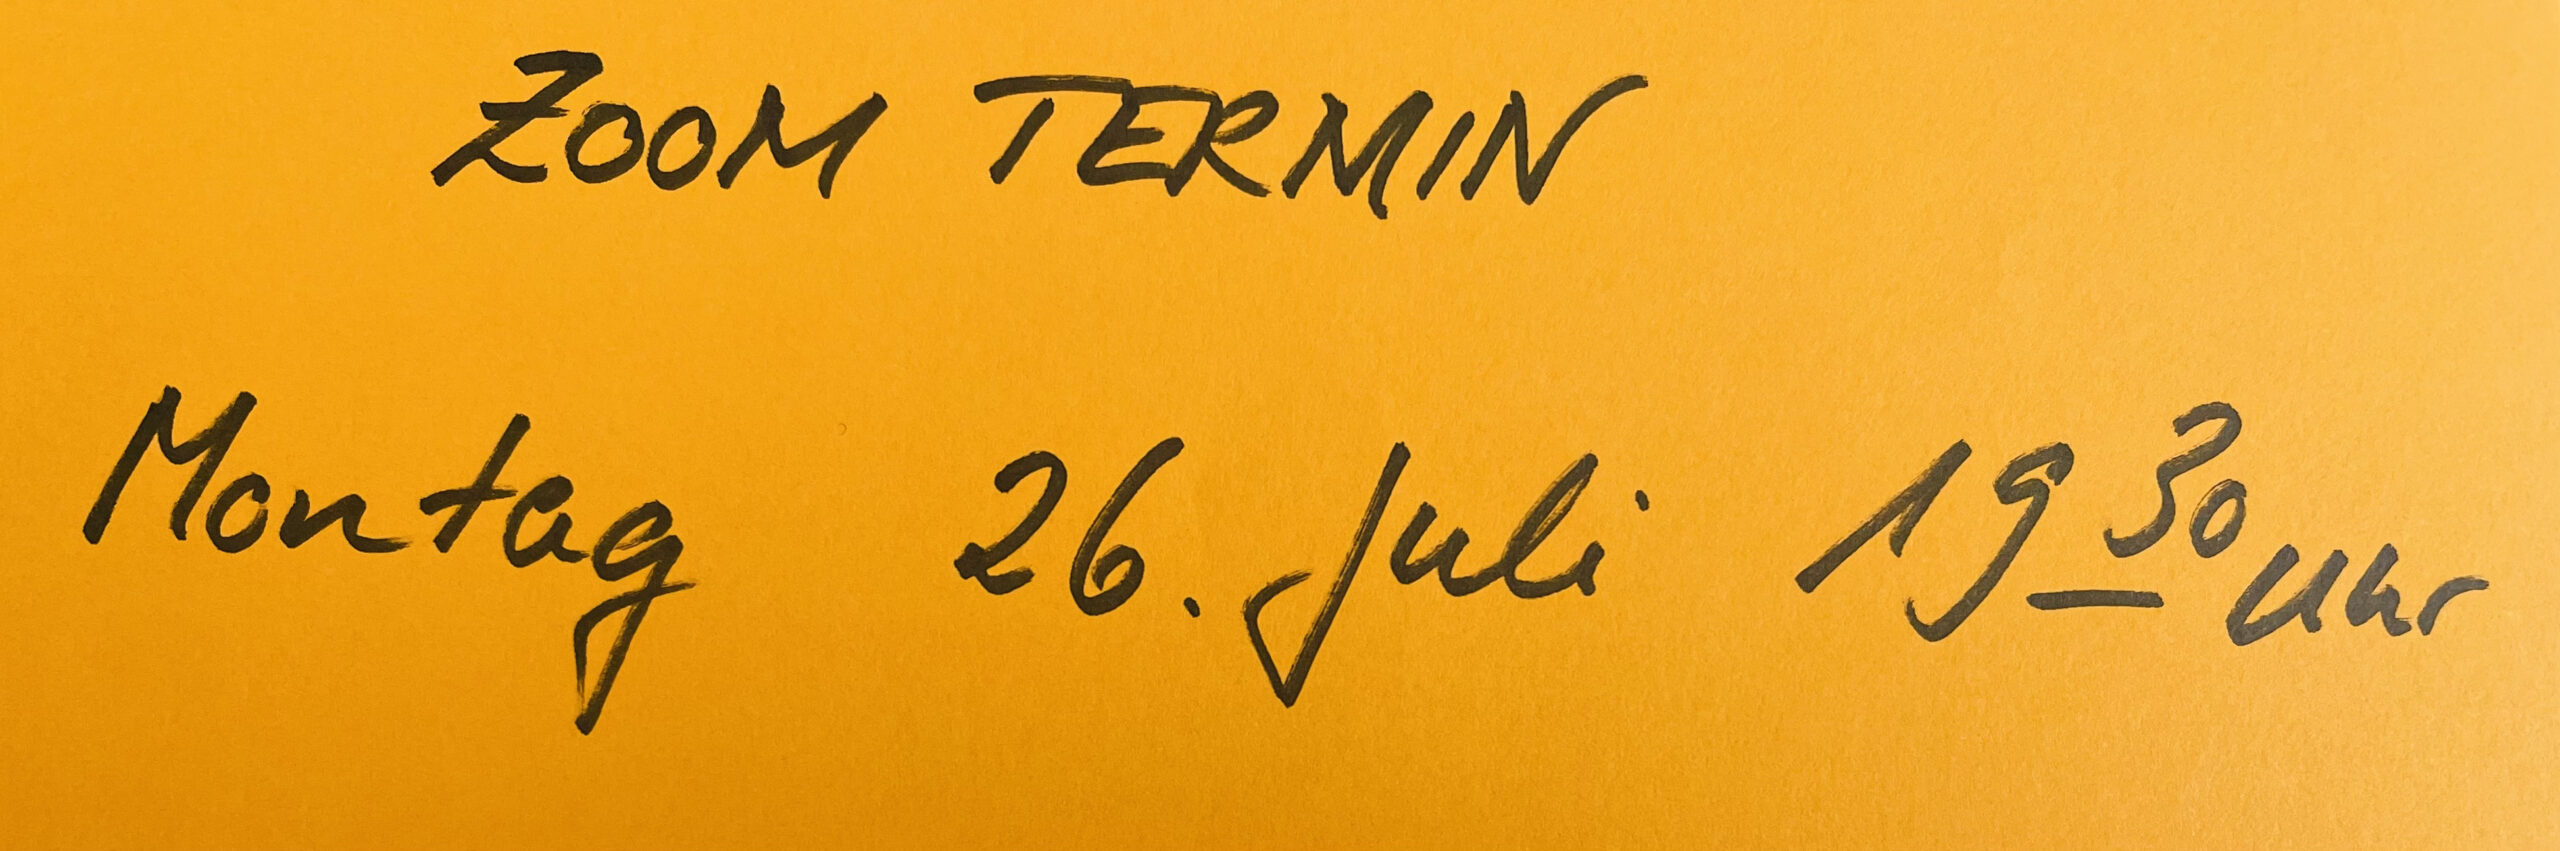 ZOOM TERMIN
Montag 26. Juli 19 30 Uhr